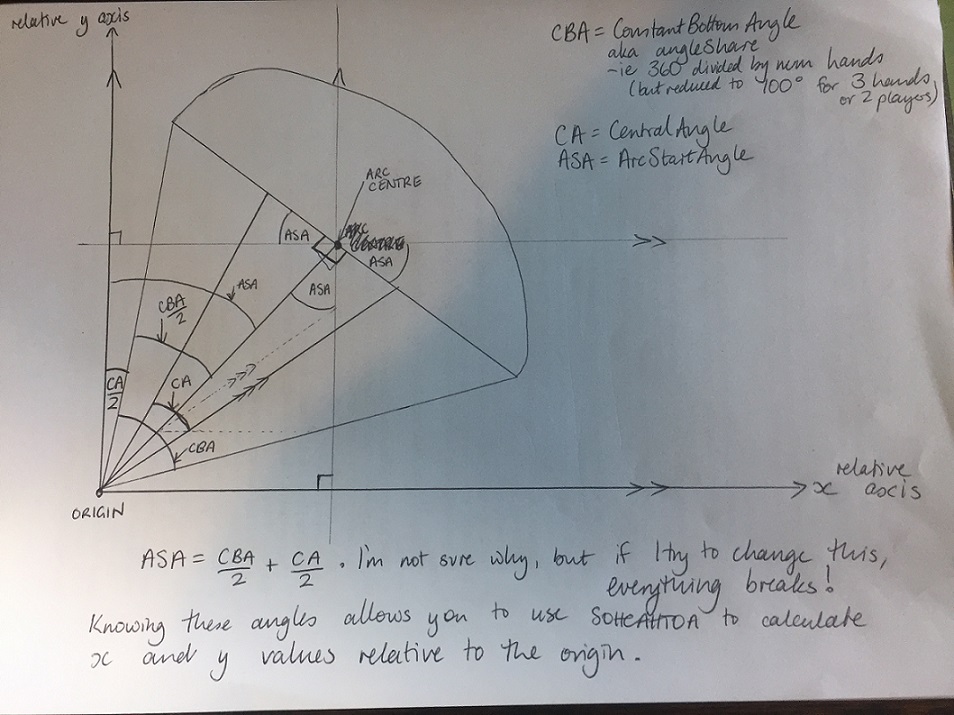 relative y axis
CBA = ConstantBottomAngle
aka angleShare
- ie 360° divided by num hands
(but reduced to 100° for 3 hands,
or 2 players)
CA = CentralAngle
ASA = ArcStartAngle
ARC
CENTRE
ASA
ASA
ASA
ASA
CBA
2
CA
2
CA
CBA
ORIGIN
relative
x axis
ASA = CBA/2 + CA/2. I'm not sure why, but if I try to change this,
everything breaks!
Knowing these angles allows you to use SOHCAHTOA to calculate
x and y values relative to the origin.